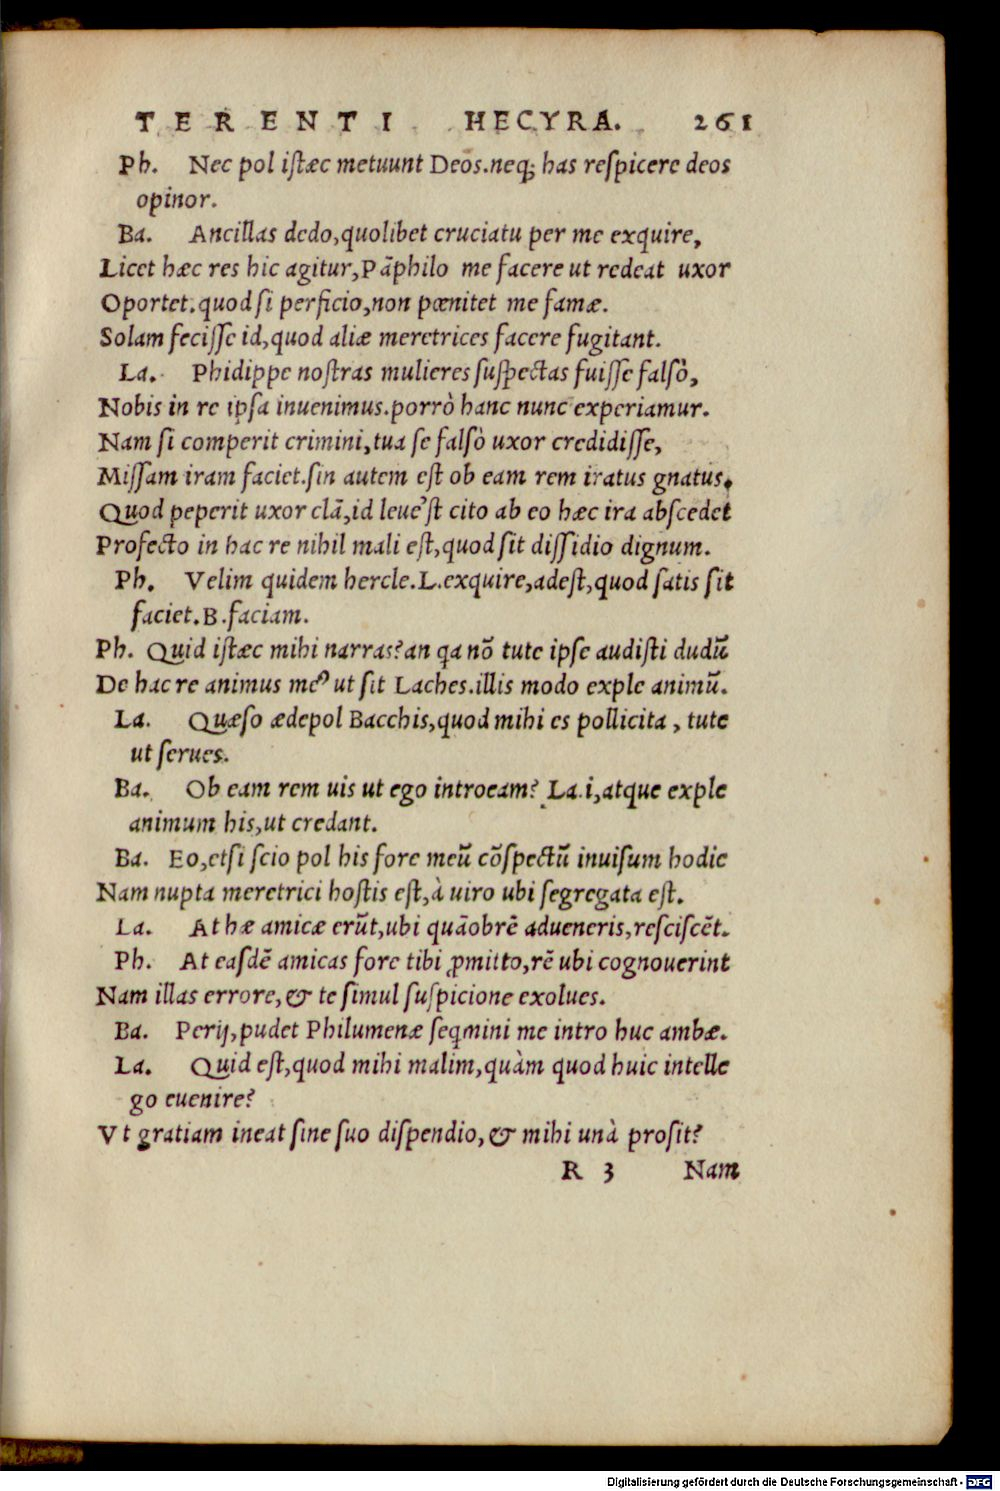 TERENTI HECYRA. 261
Ph. Nec pol istæc metuunt Deos.neq; has respicere deos
opinor.
Ba. Ancillas dedo,quolibet cruciatu per me exquire,
Licet hæc res hic agitur,Pãphilo me facere ut redeat uxor
Oportet.quod si perficio,non pœnitet me famæ.
Solam fecisse id,quod aliæ meretrices facere fugitant.
La. Phidippe nostras mulieres suspectas fuisse falsò,
Nobis in re ipsa inuenimus.porrò hanc nunc experiamur.
Nam si comperit crimini,tua se falsò uxor credidisse,
Missam iram faciet.sin autem est ob eam rem iratus gnatus,
Quod peperit uxor clã,id leue'st cito ab eo hæc ira abscedet
Profecto in hac re nihil mali est,quod sit dissidio dignum.
Ph. Velim quidem hercle.L.exquire,adest,quod satis sit
faciet.B.faciam.
Ph. Quid istæc mihi narras?an qa nõ tute ipse audisti dudũ
De hac re animus meꝰ ut sit Laches.illis modo exple animũ.
La. Quæso ædepol Bacchis,quod mihi es pollicita, tute
ut serues.
Ba. Ob eam rem uis ut ego introeam? La.i,atque exple
animum his,ut credant.
Ba. Eo,etsi scio pol his fore meũ cõspectũ inuisum hodie
Nam nupta meretrici hostis est,à uiro ubi segregata est.
La. At hæ amicæ erũt,ubi quãobrẽ adueneris,resciscẽt.
Ph. At easdẽ amicas fore tibi ꝓmitto,rẽ ubi cognouerint
Nam illas errore,& te simul suspicione exolues.
Ba. Perij,pudet Philumenæ seqmini me intro huc ambæ.
La. Quid est,quod mihi malim,quàm quod huic intelle
go euenire?
Vt gratiam ineat sine suo dispendio,& mihi unà prosit?
R 3 Nam
Digitalisierung gefördert durch die Deutsche Forschungsgemeinschaft - DFG